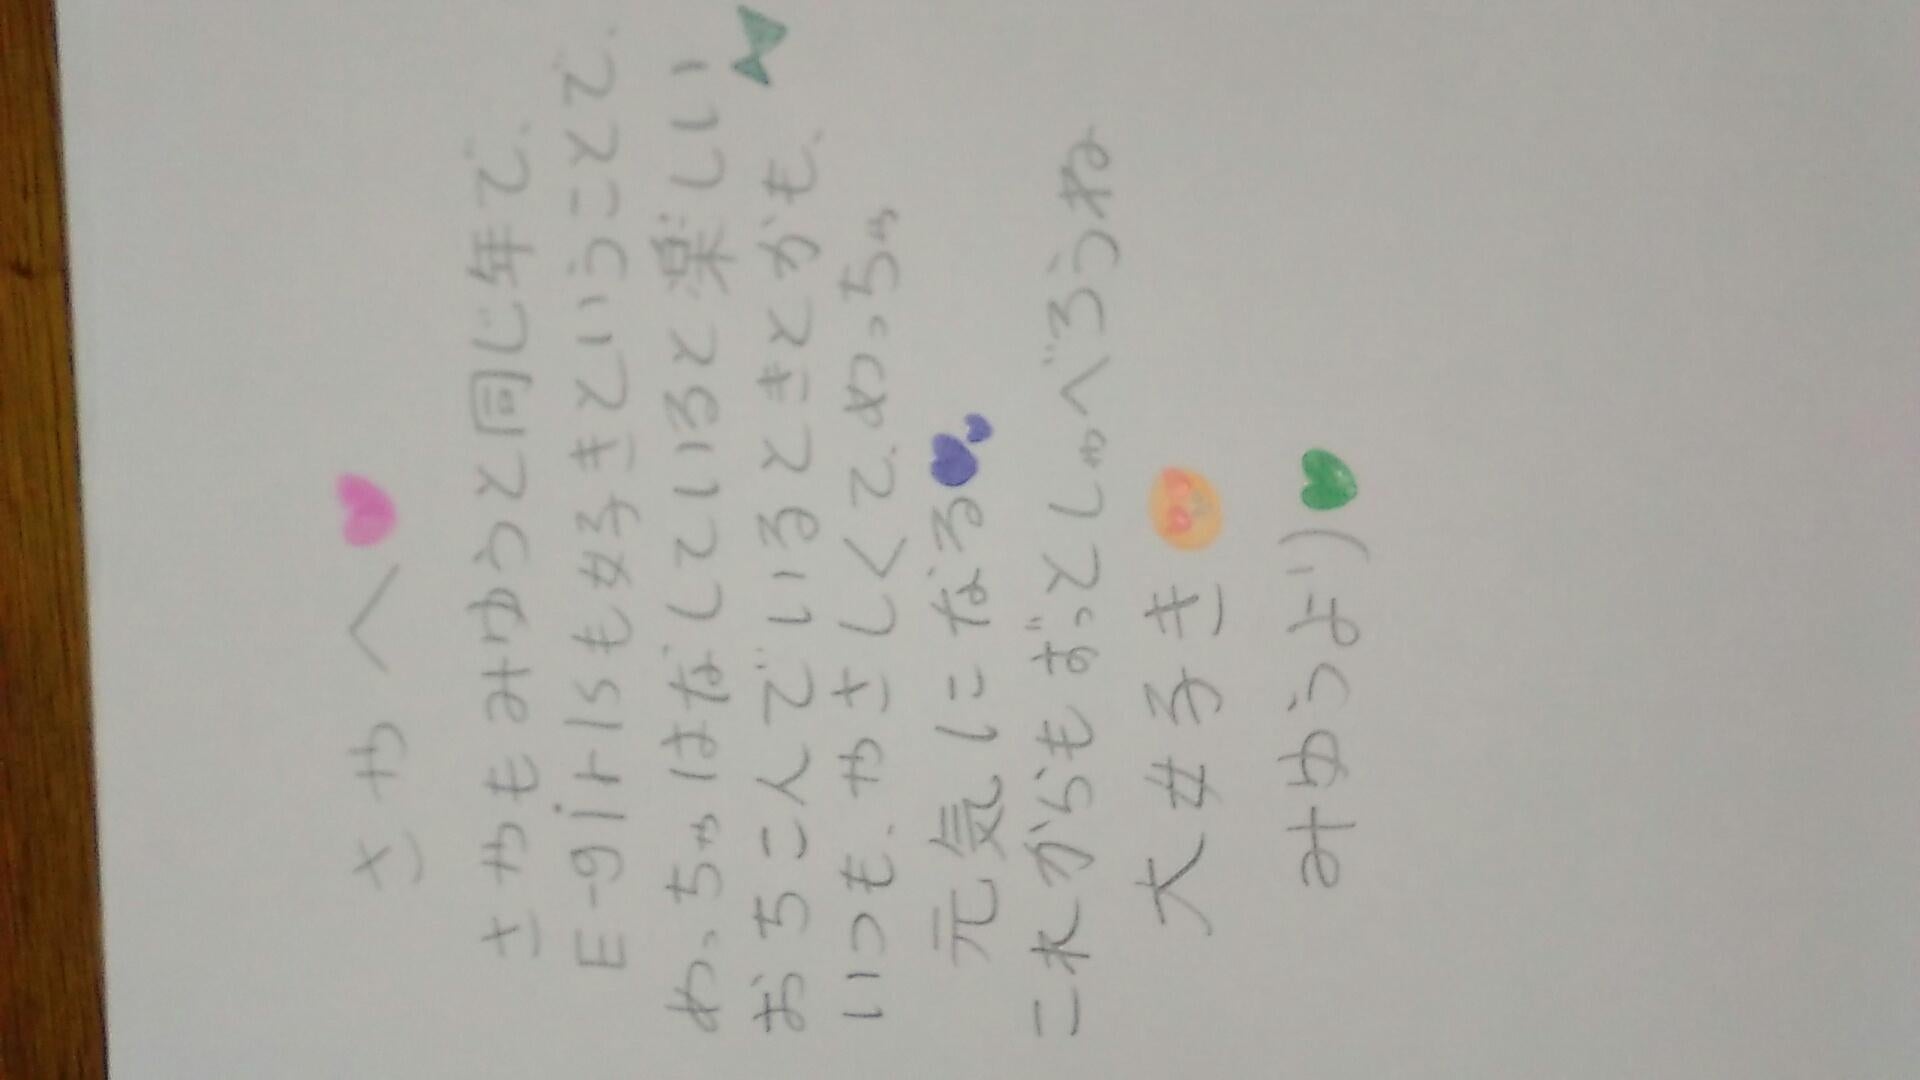 さやへ
さやもみゆうと同じ年で、
E-girlsも好きということで、
めっちゃはなしていると楽しい
おちこんでいるときとかも、
いつも、やさしくて、めっちゃ
元気になる
これからもずっとしゃべろうね
大好き
みゆうより